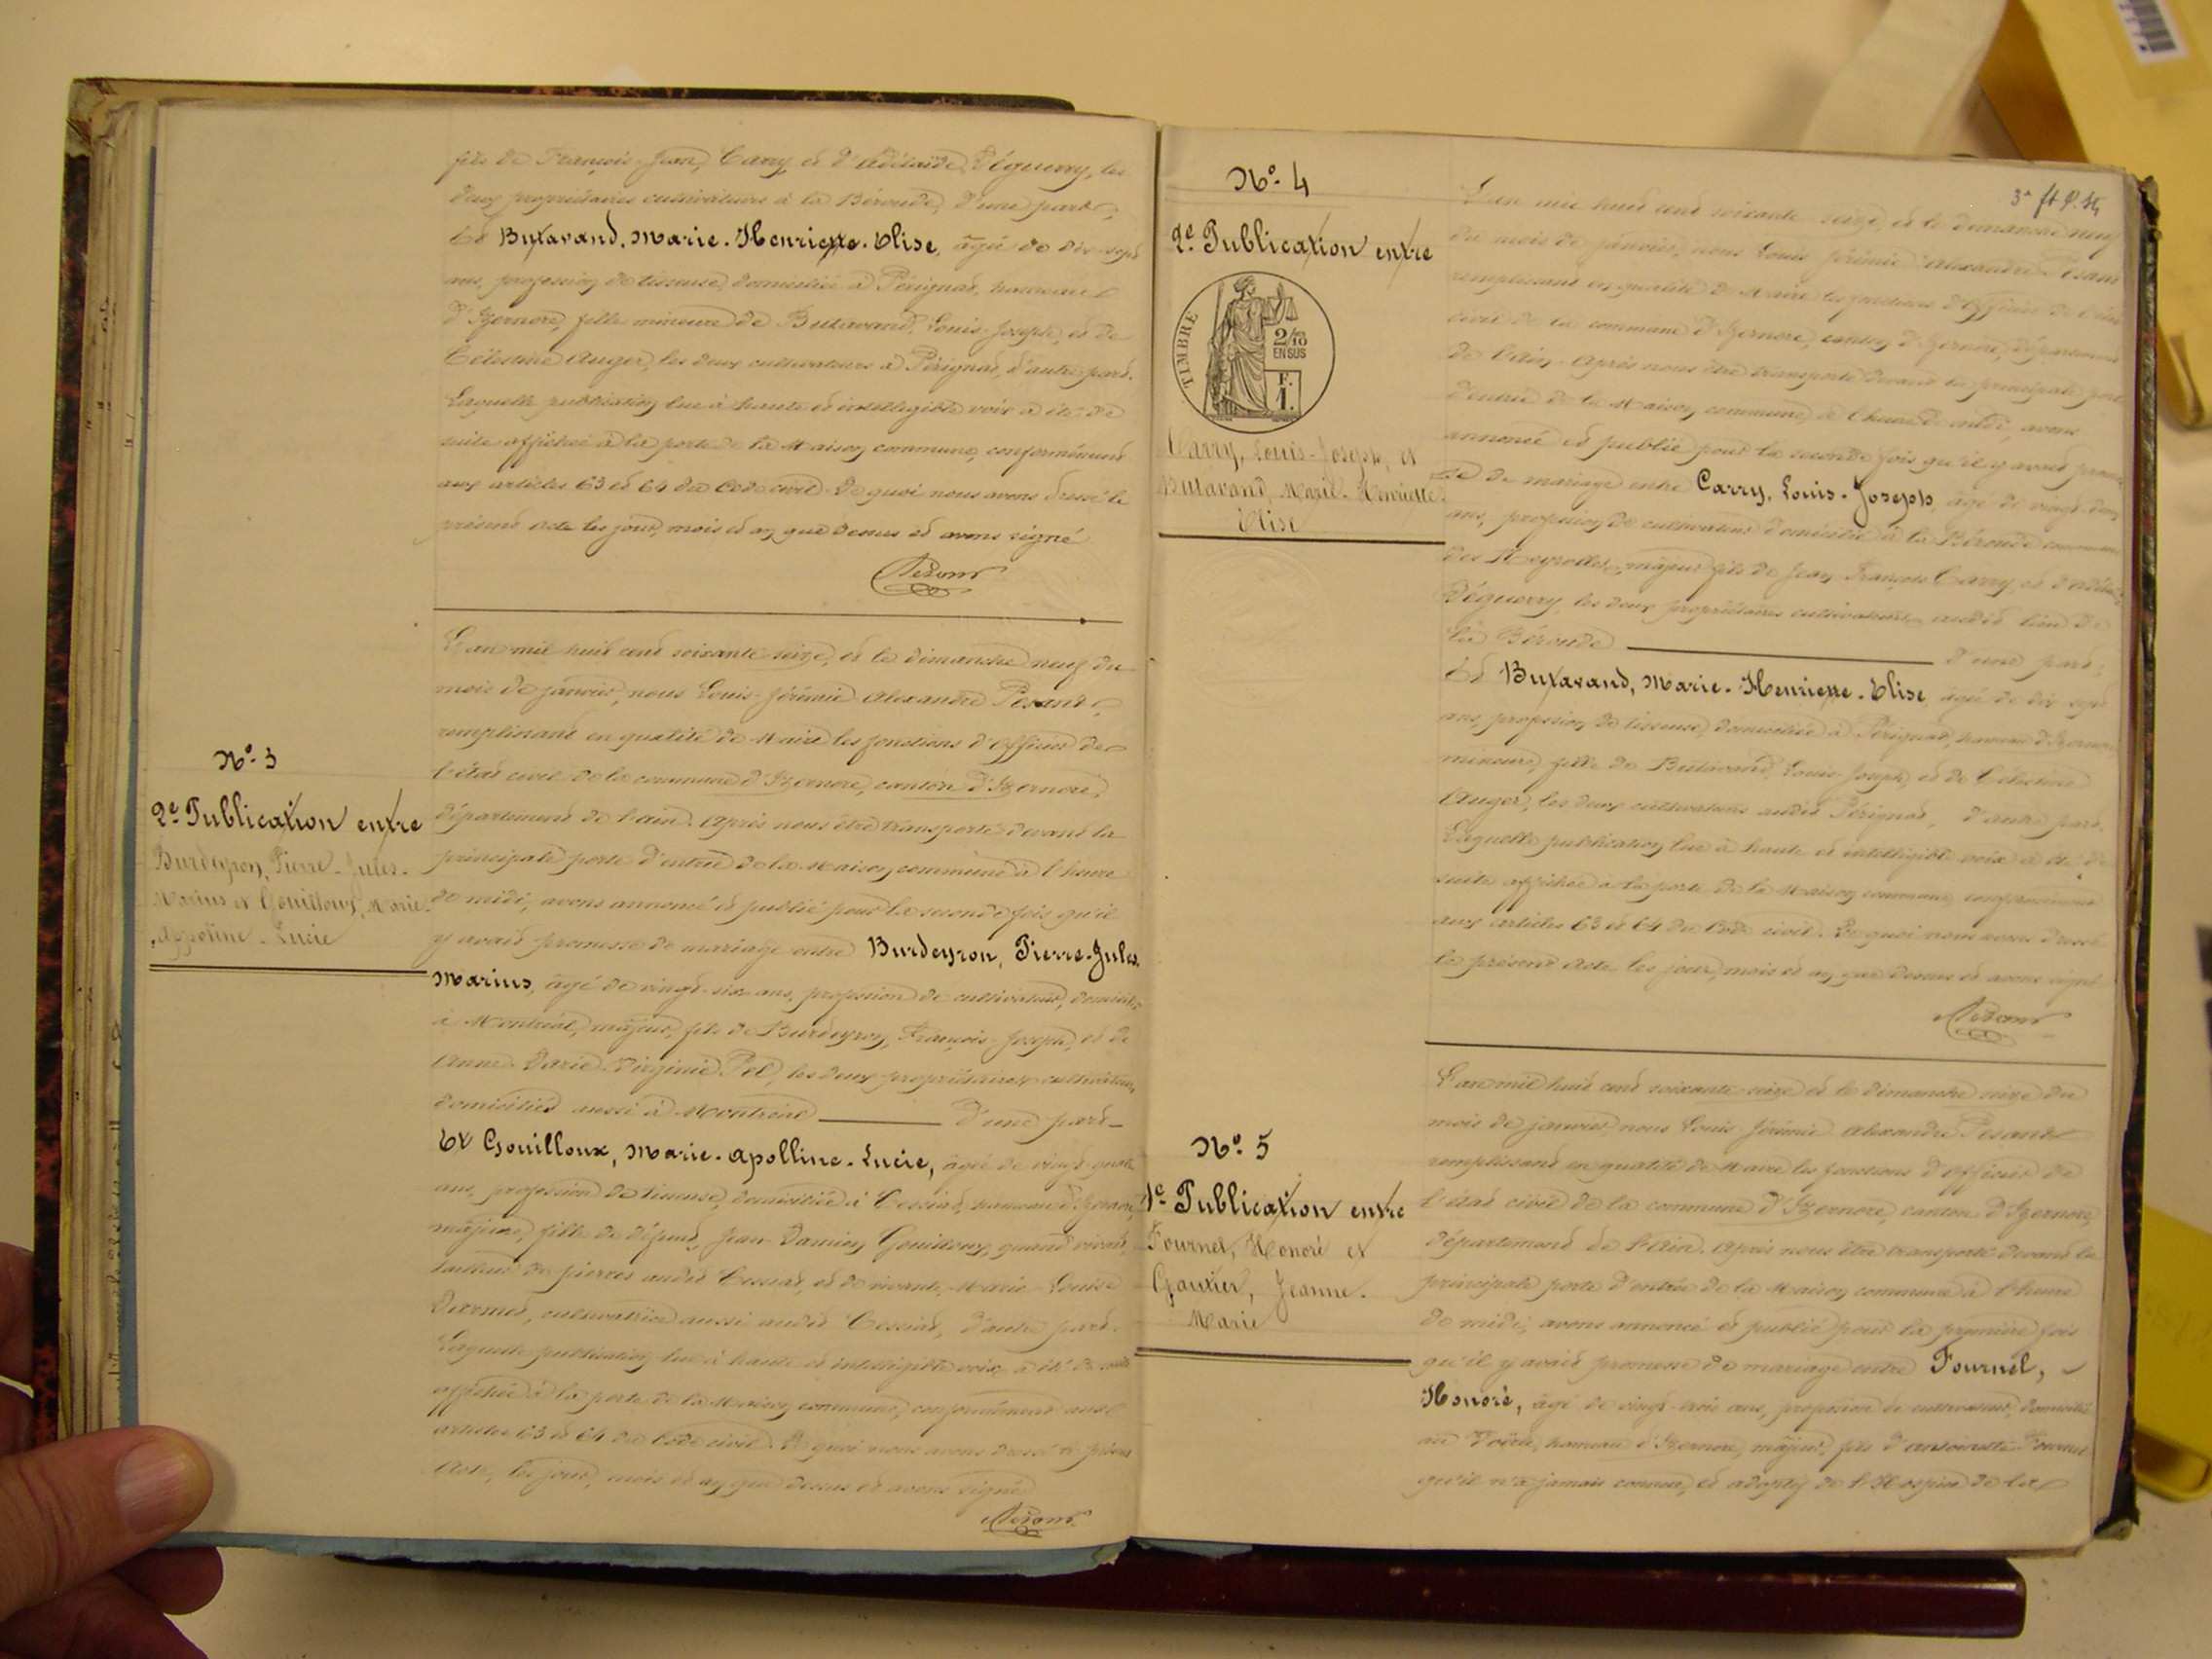 fils de François-Jean, Carry et d'Adélaïde Déguerry, les
deux propriétaires cultivateurs à la Béroude, d'une part;
Et Butavand, Marie-Henriette-Elise, âgée de dix-sept
ans, profession de tisseuse, domiciliée à Pérignat, hameau
d'Izernore, fille mineure de Butavand, Louis-Joseph, et de
Célestine Auger, les deux cultivateurs à Pérignat, d'autre part.
Laquelle publication lue à haute et intelligible voix a été de
suite affichée à la porte de la Maison commune, conformément
aux articles 63 et 64 du Code civil. De quoi nous avons dressé le
présent acte les jour, mois et an que dessus et avons signé
Pesant
N° 3
2e Publication entre
Burdeyron, Pierre-Jules-
Marius et Gouilloux, Marie-
Appoline-Lucie
L'an mil huit cent soixante seize, et le dimanche neuf du
mois de janvier, nous Louis-Jérémie Alexandre Pesant,
remplissant en qualité de Maire les fonctions d'officier de
l'état civil de la commune d'Izernore, canton d'Izernore,
département de l'ain. Après nous être transporté devant la
principale porte d'entrée de la Maison commune à l'heure
de midi, avons annoncé et publié pour la seconde fois qu'il
y avait promesse de mariage entre Burdeyron, Pierre-Jules
Marius, âgé de vingt-six ans, profession de cultivateur, domicilié
à Montréal, majeur, fils de Burdeyron, François-Joseph, et de
Anne Marie Virginie Pel, les deux propriétaires cultivateurs,
domiciliés aussi à Montréal d'une part
Et Gouilloux, Marie-Apolline-Lucie, âgée de vingt quatre
ans, profession de tisseuse, domiciliée à Cessiat, hameau d'Izernore,
majeure, fille de défunt Jean Damien Gouilloux, quand vivait,
tailleur de pierres audit Cessiat, et de vivante Marie-Louise
cultivatrice aussi audit Cessiat, d'autre part.
Laquelle publication lue à haute et intelligible voix a été de suite
affichée à la porte de la Maison commune, conformément aux
articles 63 et 64 du Code civil. De quoi nous avons dressé le présent
Acte, les jour, mois et an que dessus et avons signé
Pesant
3e
N° 4
2e Publication entre
TIMBRE
2/10
EN SUS
F.
1.
Carry, Louis-Joseph, et
Butavand, Marie-Henriette-
Elise
L'an mil huit cent soixante seize, et le dimanche neuf
du mois de janvier, nous Louis Jérémie Alexandre Pesant
remplissant en qualité de Maire les fonctions d'officier de l'état
civil de la commune d'Izernore, canton d'Izernore, département
de l'Ain. Après nous être transporté devant la principale porte
d'entrée de la Maison commune, à l'heure de midi, avons
annoncé et publié pour la seconde fois qu'il y avait promes-
se de mariage entre Carry, Louis-Joseph, âgé de vingt-deux
ans, profession de cultivateur domicilié à la Béroude commune
des Neyrolles, majeur fils de Jean François Carry, et d'Adélaïde
Déguerry les deux propriétaires cultivateurs audit lieu de
la Béroude d'une part;
Et Butavand, Marie-Henriette-Elise, âgée de dix sept
ans, profession de tisseuse, domiciliée à Pérignat, hameau d'Izernore
mineure, fille de Butavand, Louis-Joseph, et de Célestine
Auger, les deux cultivateurs audit Pérignat, d'autre part.
Laquelle publication lue à haute et intelligible voix a été de
suite affichée à la porte de la Maison commune, conformément
aux articles 63 et 64 du Code civil. De quoi nous avons dressé
le présent Acte les jour, mois et an que dessus et avons signé
Pesant
N° 5
1e Publication entre
Fournel, Honoré et
Gautier, Jeanne-
Marie
L'an mil huit cent soixante seize et le dimanche seize du
mois de janvier, nous Louis Jérémie Alexandre Pesant
remplissant en qualité de Maire les fonctions d'officier de
l'état civil de la commune d'Izernore, canton d'Izernore,
département de l'Ain. Après nous être transporté devant la
principale porte d'entrée de la Maison commune à l'heure
de midi, avons annoncé et publié pour la première fois
qu'il y avait promesse de mariage entre Fournel,
Honoré, âgé de vingt-trois ans, profession de cultivateur, domicilié
au hameau d'Izernore, majeur, fils d'Antoinette Fournel
qu'il n'a jamais connue, et adoptif de l'Hospice de la